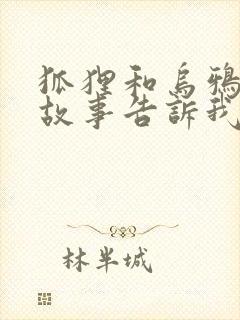 狐狸和烏鴉
故事告訴我
林半城